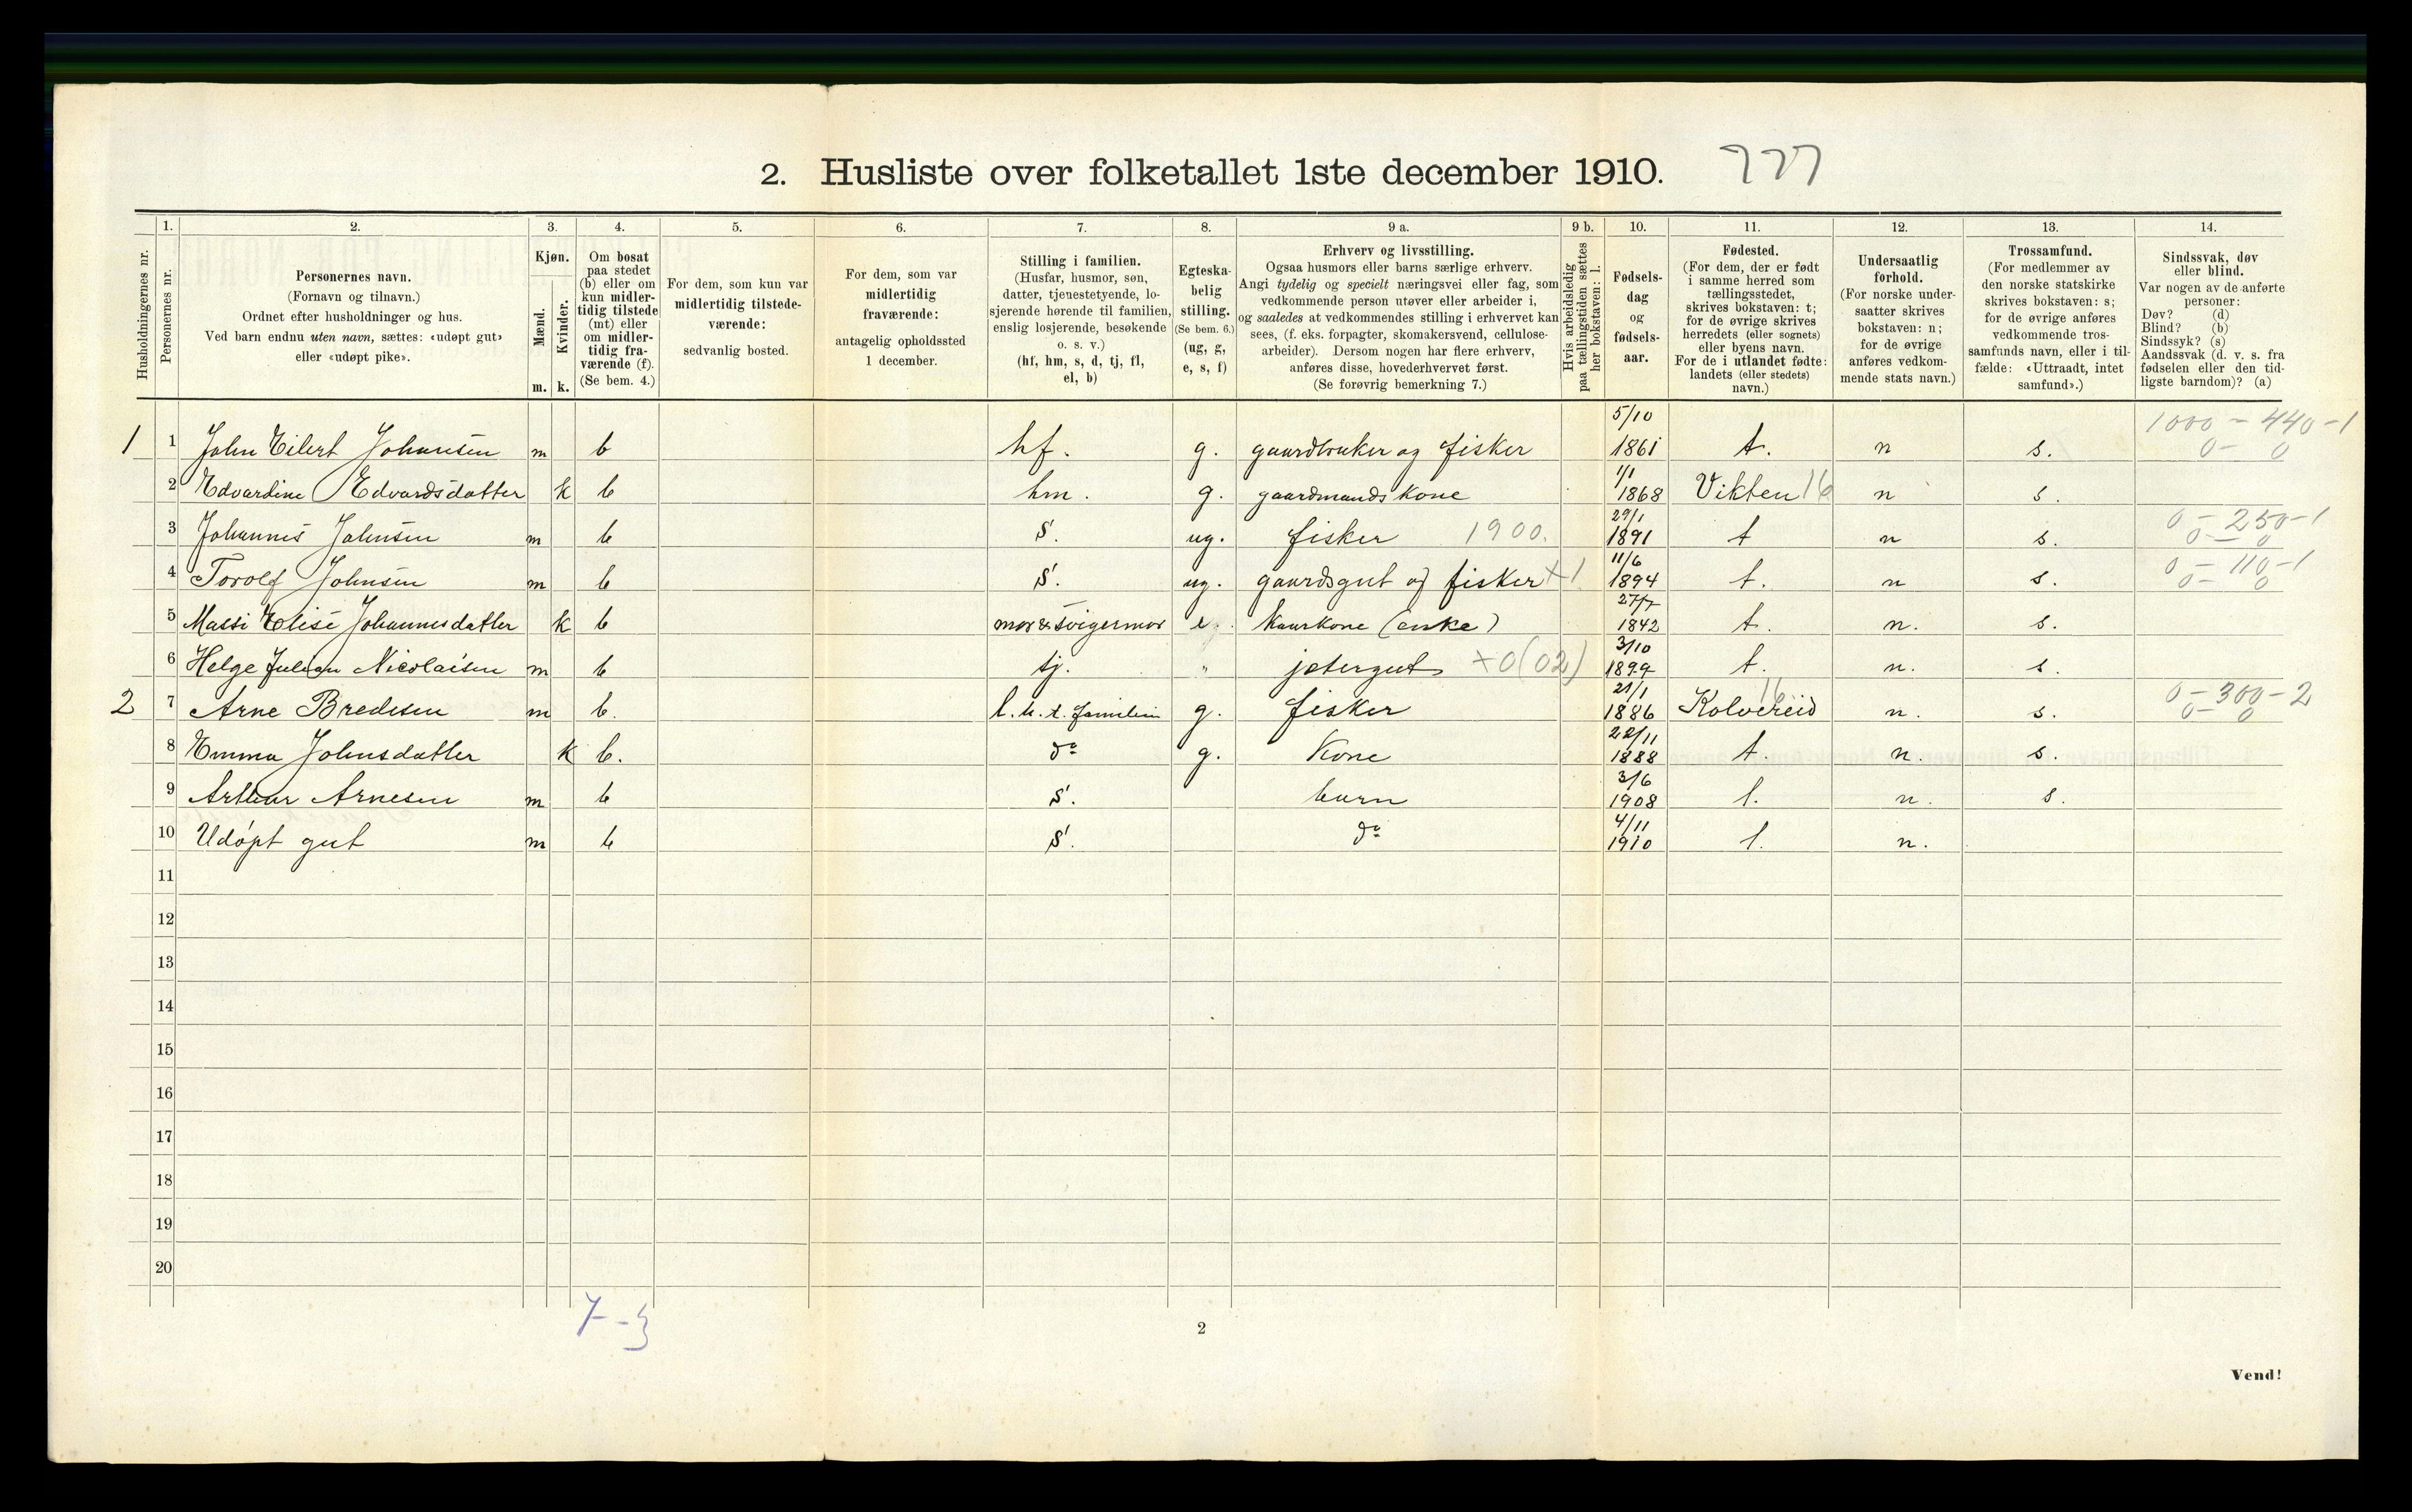 2. Husliste over folketallet 1ste december 1910. 777
1. 2. 3. 4. 5. 6. 7. 8. 9 a. 9 b. 10. 11. 12. 13. 14.
Husholdningernes nr.
Personernes nr.
Personernes navn.
(Fornavn og tilnavn.)
Ordnet efter husholdninger og hus.
Ved barn endnu uten navn, sættes: «udøpt gut»
eller «udøpt pike».
Kjøn.
Mænd.
Kvinder.
m. k.
Om bosat
paa stedet
(b) eller om
kun midler-
tidig tilstede
(mt) eller
om midler-
tidig fra-
værende (f).
(Se bem. 4.)
For dem, som kun var
midlertidig tilstede-
værende:
sedvanlig bosted.
For dem, som var
midlertidig
fraværende:
antagelig opholdssted
1 december.
Stilling i familien.
(Husfar, husmor, søn,
datter, tjenestetyende, lo-
sjerende hørende til familien,
enslig losjerende, besøkende
o. s. v.)
(hf, hm, s, d, tj, fl,
el, b)
Egteska-
belig
stilling.
(Se bem. 6.)
(ug, g,
e, s, f)
Erhverv og livsstilling.
Ogsaa husmors eller barns særlige erhverv.
Angi tydelig og specielt næringsvei eller fag, som
vedkommende person utøver eller arbeider i,
og saaledes at vedkommendes stilling i erhvervet kan
sees, (f. eks. forpagter, skomakersvend, cellulose-
arbeider). Dersom nogen har flere erhverv,
anføres disse, hovederhvervet først.
(Se forøvrig bemerkning 7.)
Hvis arbeidsledig
paa tællingstiden sættes
her bokstaven: l.
Fødsels-
dag
og
fødsels-
aar.
Fødested.
(For dem, der er født
i samme herred som
tællingsstedet,
skrives bokstaven: t;
for de øvrige skrives
herredets (eller sognets)
eller byens navn.
For de i utlandet fødte:
landets (eller stedets)
navn.)
Undersaatlig
forhold.
(For norske under-
saatter skrives
bokstaven: n;
for de øvrige
anføres vedkom-
mende stats navn.)
Trossamfund.
(For medlemmer av
den norske statskirke
skrives bokstaven: s;
for de øvrige anføres
vedkommende tros-
samfunds navn, eller i til-
fælde: «Uttraadt, intet
samfund».)
Sindssvak, døv
eller blind.
Var nogen av de anførte
personer:
Døv? (d)
Blind? (b)
Sindssyk? (s)
Aandssvak (d. v. s. fra
fødselen eller den tid-
ligste barndom)? (a)
1 1 John Eilert Johansen m b hf. g. gaardbruker og fisker 5/10 1861 t. n s. 1000 - 440 - 1 0 - 0
2 Edvardine Edvardsdatter k b hm. g. gaardmands kone 1/1 1868 Vikten 16 n s.
3 Johannes Johnsen m b s. ug. fisker 1900. 29/1 1891 t n s. 0 - 250 - 1 0 - 0
4 Torolf Johnsen m b s. ug. gaardsgut og fisker +1 11/6 1894 t. n s. 0 - 110 - 1 0 - 0
5 Massi Elise Johannesdatter k b mor & svigermor e. Kaarkone (enke) 27/7 1842 t. n. s.
6 Helge Julian Nicolaisen m b tj. " jetergut +0(02) 3/10 1899 t. n. s.
2 7 Arne Bredesen m b. l. h. t. familien g. fisker 21/1 1886 Kolvereid 16 n. s. 0 - 300 - 2 0 - 0
8 Emma Johnsdatter k b. do g. Kone 22/11 1888 t. n. s.
9 Arthur Arnesen m b s. barn 3/6 1908 t. n. s.
10 Udøpt gut m b s. do 4/11 1910 t. n.
11
12
13
14
15
16
17
18
19
20
7 - 3
2
Vend!